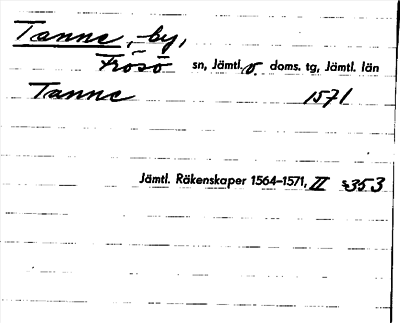 Tanne, by,
Frösö sn, Jämtl. v. doms. tg, Jämtl. län
Tanne 1571
Jämtl. Räkenskaper 1564–1571, II s 353